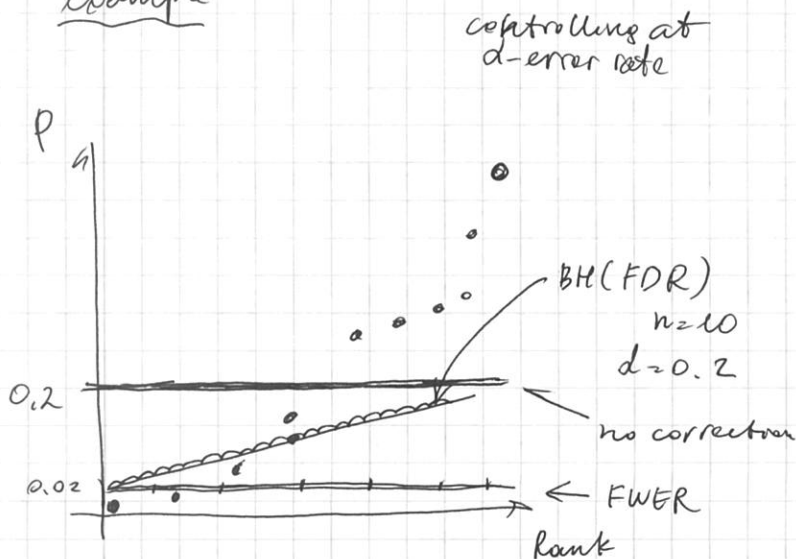 example
controlling at
α-error rate
P
BH (FDR)
n=10
α=0.2
0,2
no correction
0.02
FWER
Rank